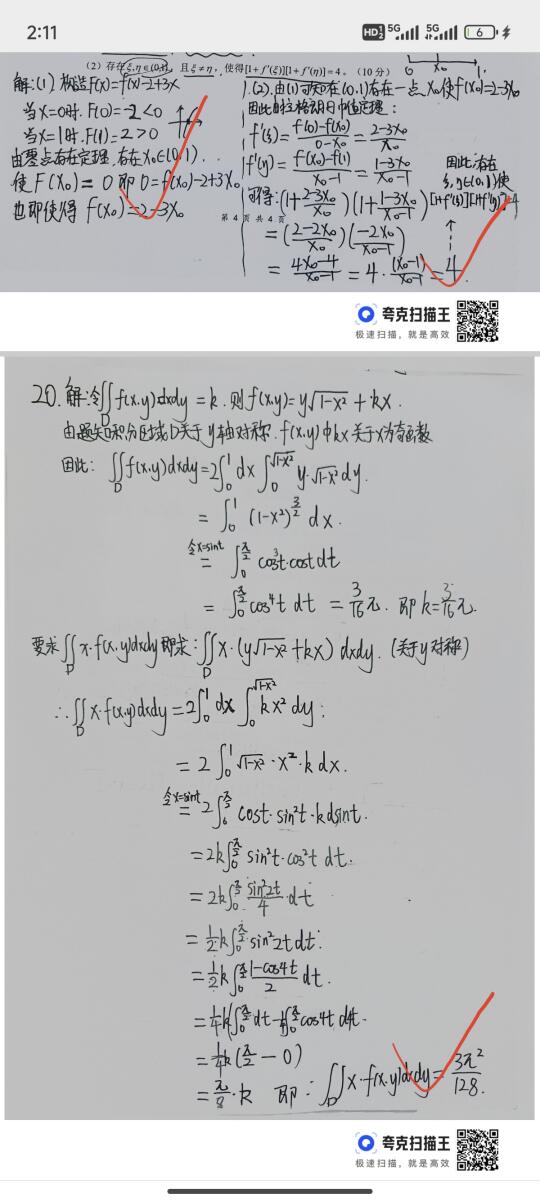 2:11
HD 5G 5G 6
(2) 存在ξ,η∈(0,1), 且ξ≠η, 使得[1+f'(ξ)][1+f'(η)]=4。(10分)
解:(1) 构造F(x)=f(x)-2+3x
当x=0时. F(0)=-2<0
当x=1时. F(1)=2>0
由零点存在定理, 存在x₀∈(0,1).
使 F(x₀)=0 即 0=f(x₀)-2+3x₀
也即使得 f(x₀)=2-3x₀
0 x₀ 1
(2). 由(1)可知存在(0,1)存在一点x₀使f(x₀)=2-3x₀
因此由拉格朗日中值定理:
f'(ξ)=\frac{f(0)-f(x₀)}{0-x₀}=\frac{2-3x₀}{x₀}
f'(η)=\frac{f(x₀)-f(1)}{x₀-1}=\frac{1-3x₀}{x₀-1}
因此存在
ξ,η∈(0,1)使
[1+f'(ξ)][1+f'(η)]=4
可得:(1+\frac{2-3x₀}{x₀})(1+\frac{1-3x₀}{x₀-1})
=(\frac{2-2x₀}{x₀})(\frac{-2x₀}{x₀-1})
=\frac{4x₀-4}{x₀-1}=4·\frac{(x₀-1)}{x₀-1}=4.
第 4 页 共 4 页
夸克扫描王
极速扫描,就是高效
20. 解:令∬_D f(x,y)dxdy=k. 则f(x,y)=y√(1-x²)+kx.
由题知积分区域D关于y轴对称. f(x,y)中kx关于x为奇函数
因此: ∬_D f(x,y)dxdy=2∫₀¹dx∫₀^{√(1-x²)} y·√(1-x²)dy.
=∫₀¹(1-x²)^{3/2} dx.
令x=sint = ∫₀^{π/2} cos³t·cost dt
=∫₀^{π/2} cos⁴t dt = \frac{3}{16}π. 即k=\frac{3}{16}π.
要求∬_D x·f(x,y)dxdy即求:∬_D x·(y√(1-x²)+kx) dxdy. (关于y对称)
∴∬_D x·f(x,y)dxdy=2∫₀¹dx∫₀^{√(1-x²)} kx²dy;
=2∫₀¹√(1-x²)·x²·k dx.
令x=sint = 2∫₀^{π/2} cost·sin²t·k dsint.
=2k∫₀^{π/2} sin²t·cos²t dt.
=2k∫₀^{π/2} \frac{sin²2t}{4}·dt
=\frac{1}{2}k∫₀^{π/2}·sin²2t dt.
=\frac{1}{2}k∫₀^{π/2}\frac{1-cos4t}{2}dt.
=\frac{1}{4}k(∫₀^{π/2}dt-\frac{1}{4}∫₀^{π/2}cos4t d4t.
=\frac{1}{4}k(\frac{π}{2}-0)
=\frac{π}{8}·k 即:∬_D x·f(x,y)dxdy=\frac{3π²}{128}.
夸克扫描王
极速扫描,就是高效